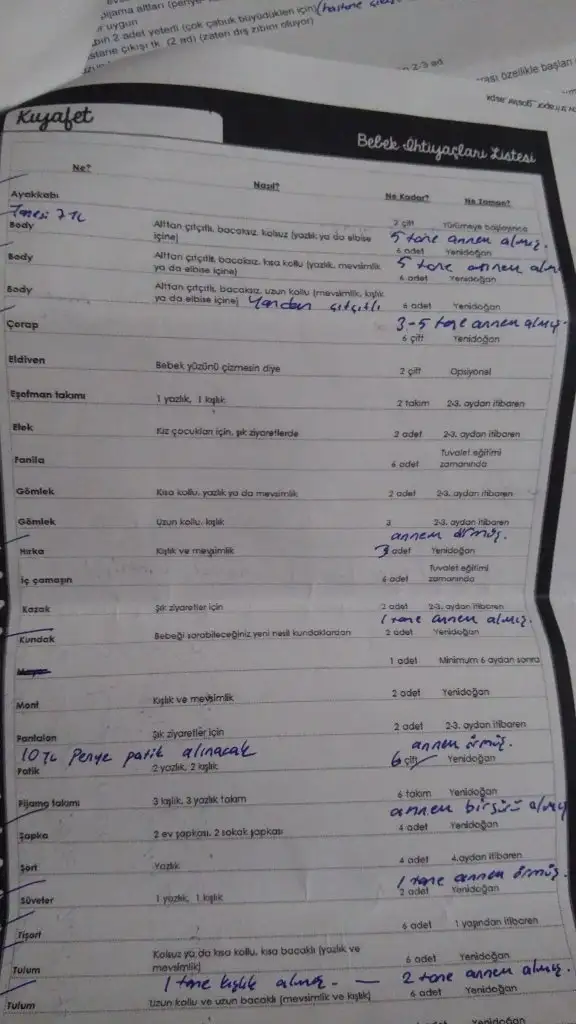 pijama altları
uygun
2 adet yeterli (çok çabuk büyüdükleri için) (hastane
stane çıkışı tk (2 ad) (zaten dış zıbını oluyor)
2-3 ad
özellikle başları
Kıyafet
Bebek İhtiyaçları Listesi
Ne? Nasıl? Ne Kadar? Ne Zaman?
Ayakkabı 2 çift Yürümeye başlayınca
Tanesi 7 TL 5 tane annem almış.
Body Alttan çıtçıtlı, bacaksız, kolsuz (yazlık ya da elbise içine) 6 adet Yenidoğan
5 tane annem alm
Body Alttan çıtçıtlı, bacaksız, kısa kollu (yazlık, mevsimlik ya da elbise içine) 6 adet Yenidoğan
Body Alttan çıtçıtlı, bacaksız, uzun kollu (mevsimlik, kışlık ya da elbise içine) Yandan çıtçıtlı 6 adet Yenidoğan
3-5 tane annem almış.
Çorap 6 çift Yenidoğan
Eldiven Bebek yüzünü çizmesin diye 2 çift Opsiyonel
Eşofman takımı 1 yazlık, 1 kışlık 2 takım 2-3. aydan itibaren
Etek Kız çocukları için, şık ziyaretlerde 2 adet 2-3. aydan itibaren
Fanila 6 adet Tuvalet eğitimi zamanında
Gömlek Kısa kollu, yazlık ya da mevsimlik 2 adet 2-3. aydan itibaren
Gömlek Uzun kollu, kışlık 2-3. aydan itibaren
annem örmüş.
Hırka Kışlık ve mevsimlik 3 adet Yenidoğan
İç çamaşırı 6 adet Tuvalet eğitimi zamanında
Kazak Şık ziyaretler için 2 adet 2-3. aydan itibaren
1 tane annem almış.
Kundak Bebeği sarabileceğiniz yeni nesil kundaklardan 2 adet Yenidoğan
1 adet Minimum 6 aydan sonra
Mont Kışlık ve mevsimlik 2 adet Yenidoğan
Pantalon Şık ziyaretler için 2 adet 2-3. aydan itibaren
10 TL Penye patik alınacak annem örmüş.
Patik 2 yazlık, 2 kışlık 6 çift Yenidoğan
Pijama takımı 3 kışlık, 3 yazlık takım 6 takım Yenidoğan
annem birsürü almış
Şapka 2 ev şapkası, 2 sokak şapkası 4 adet Yenidoğan
Şort Yazlık 4 adet 4.aydan itibaren
1 tane annem örmüş.
Süveter 1 yazlık, 1 kışlık 2 adet Yenidoğan
Tişört 6 adet 1 yaşından itibaren
Tulum Kolsuz ya da kısa kollu, kısa bacaklı (yazlık ve mevsimlik) 6 adet Yenidoğan
1 tane kışlık almış. — 2 tane annem almış.
Tulum Uzun kollu ve uzun bacaklı (mevsimlik ve kışlık) 6 adet Yenidoğan
Yenidoğan